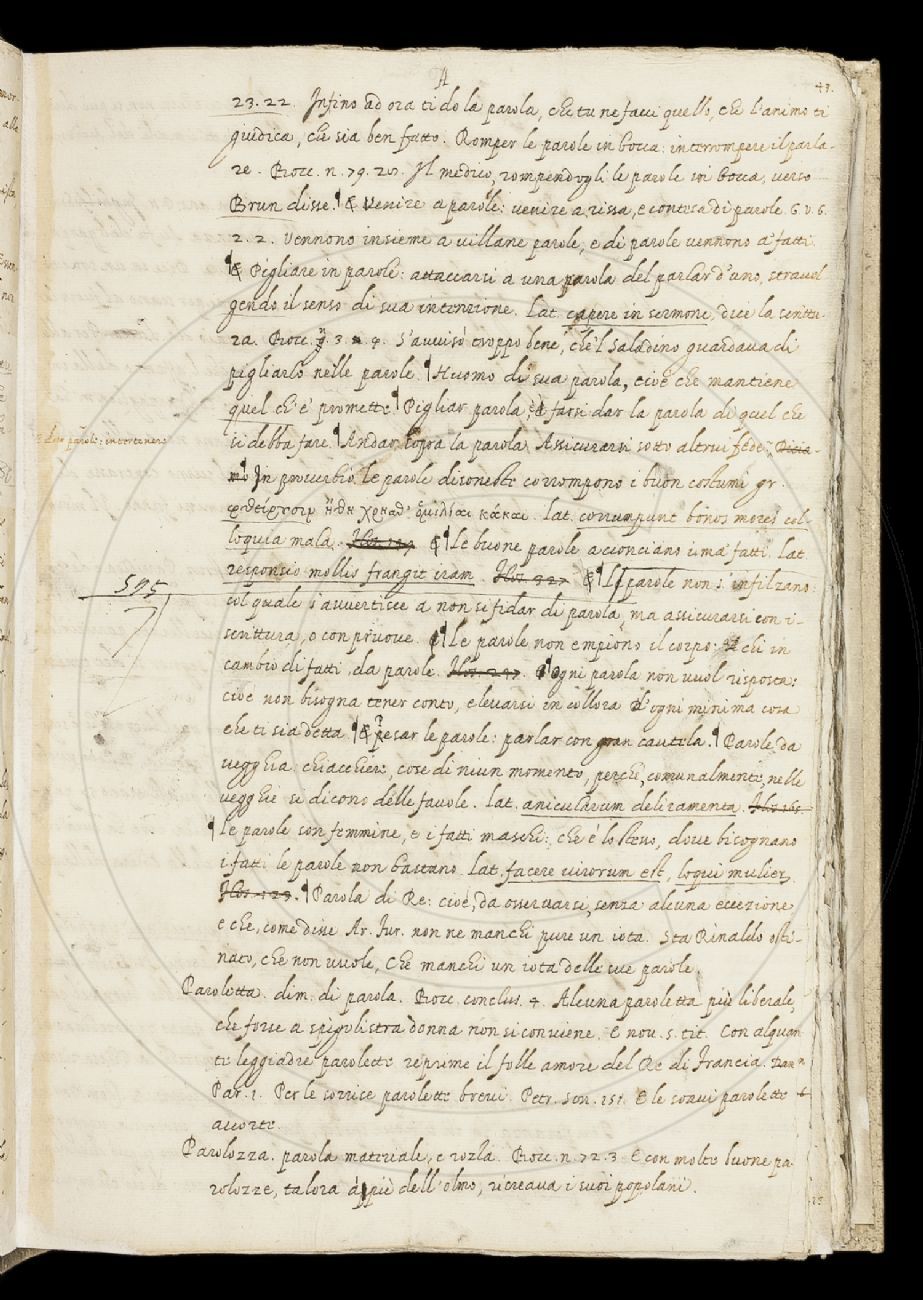 A
43.
23.22. Infino ad ora ti do la parola, che tu ne facci quello, che l'animo ti
giudica, che sia ben fatto. Romper le parole in bocca: interrompere il parla-
re. Bocc. n. 79. Il medico, rompendogli le parole in bocca, verso
Brun disse. ¶ & Venire a parole: venire a rissa, e contesa di parole. G. V. 6.
2. 2. Vennono insieme a villane parole, e di parole vennono a' fatti.
¶ & Pigliare in parole: attaccarsi a una parola del parlar d'uno, stravol
gendo il senso di sua intenzione. Lat. capere in sermone, dice la scrittu-
ra. Bocc. g. 3. n. 9. S'avvisò troppo bene, che'l Saladino guardava di
pigliarlo nelle parole. ¶ Huomo di sua parola, cioè che mantiene
quel ch'e' promette. ¶ Pigliar parola, è farsi dar la parola di quel che
si debba fare. ¶ Andar sopra la parola. Assicurarsi sotto altrui fede. Dicia-
mo In proverbio. Le parole disoneste corrompono i buon costumi gr.
dar parole: intertenere
φθείρουσιν ἤθη χρησθ' ὁμιλίαι κάκαι. Lat. corrumpunt bonos mores col-
loquia mala. & ¶ Le buone parole acconciano i ma' fatti. Lat.
responsio mollis frangit iram. & ¶ Le parole non s'infilzano:
595
col quale s'avvertisce a non si fidar di parola, ma assicurarsi con i-
scrittura, o con pruove. & ¶ Le parole non empiono il corpo: chi in
cambio di fatti, da parole. ¶ Ogni parola non vuol risposta:
cioè non bisogna tener conto, e levarsi in collora d'ogni minima cosa
che ti sia detta. ¶ & Pesar le parole: parlar con gran cautela. ¶ Parole da
vegghia: chiacchiere, cose di niun momento, perche, comunalmente, nelle
vegghie si dicono delle favole. Lat. anicularum deliramenta.
¶ Le parole son femmine, e i fatti maschi: che è lo stesso, dove bisognano
i fatti le parole non bastano. Lat. facere virorum est, loqui mulier.
¶ Parola di Re: cioè, da osservarsi, senza alcuna eccezione
e che, come disse Ar. Fur. non ne manchi pure un iota. Sta Rinaldo osti-
nato, che non vuole, Che manchi un iota delle sue parole.
Paroletta. dim. di parola. Bocc. conclus. 4. Alcuna paroletta più liberale,
che forse a spigolistra donna non si conviene. E nov. 5. tit. Con alquan
te leggiadre parolette reprime il folle amore del Re di Francia. Dan
Par. 1. Per le sorrise parolette brevi. Petr. Son. 151. E le soavi parolette
accorte.
Parolozza. parola materiale, e rozza. Bocc. n. 72. 3. E con molte buone pa-
rolozze, talora appiè dell'olmo, ricreava i suoi popolani.